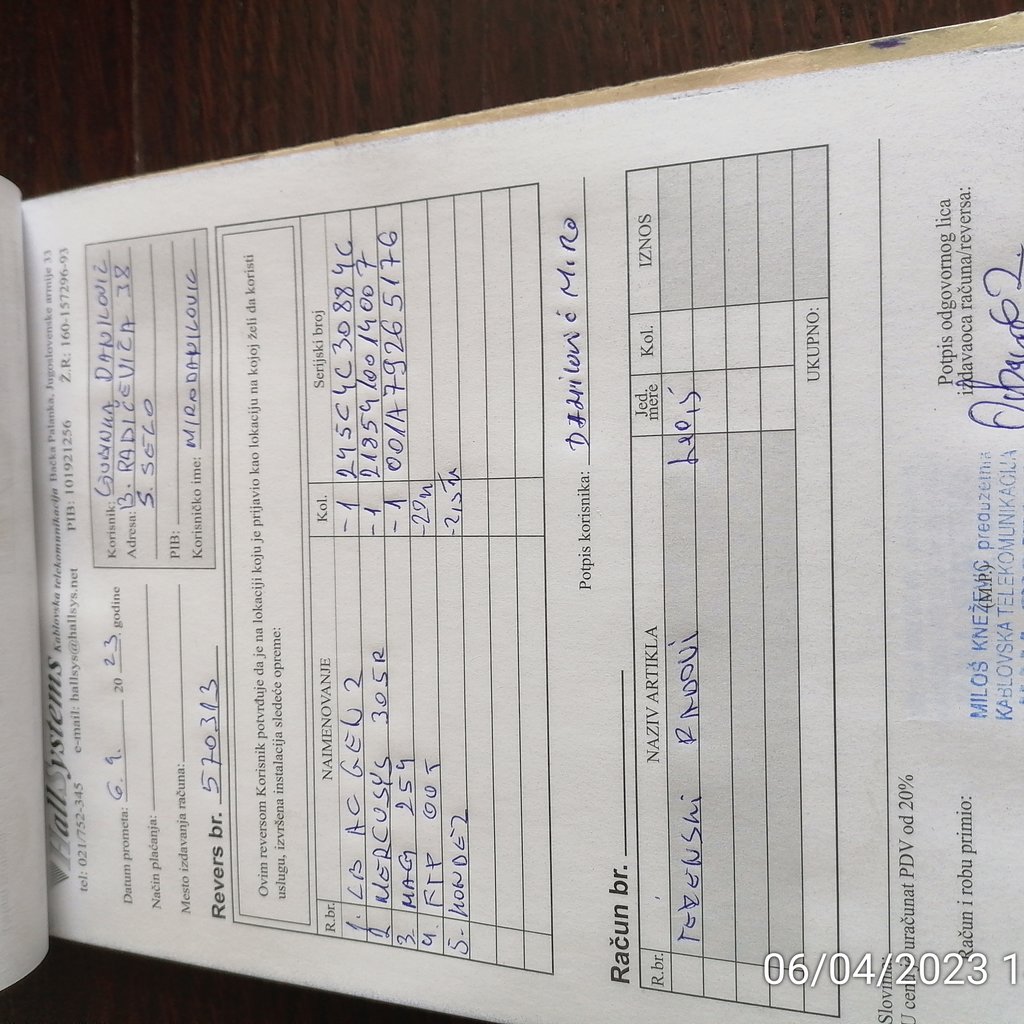 HallSystems Kablovska telekomunikacija Bačka Palanka, Jugoslovenske armije 33
tel: 021/752-345 e-mail: hallsys@hallsys.net PIB: 101921256 Ž.R: 160-157296-93
Datum prometa: 6. 4. 20 23. godine
Način plaćanja:
Mesto izdavanja računa:
Korisnik: DANILOVIĆ
Adresa: B. RADIČEVIĆA 38
PIB:
Korisničko ime: MIRODANILOVIC
Revers br. 570313
Ovim reversom Korisnik potvrđuje da je na lokaciji koju je prijavio kao lokaciju na kojoj želi da koristi
uslugu, izvršena instalacija sledeće opreme:
R.br. NAIMENOVANJE Kol. Serijski broj
1. LB AC GEN 2 -1 245C4C30884C
2 MERCUSYS 305R -1 2185410014007
3. MAG 254 -1 001A79265176
4. FTP OUT
5. KONDEZ
Potpis korisnika: Danilović Miro
Račun br.
R.br. NAZIV ARTIKLA Jed. mere Kol. IZNOS
TERENSKI RADOVI
UKUPNO:
Slovima:
U cenu je uračunat PDV od 20%
Račun i robu primio:
(M.P.)
Potpis odgovornog lica
izdavaoca računa/reversa:
MILOŠ KNEŽEVIĆ preduzetnik
KABLOVSKA TELEKOMUNIKACIJA
06/04/2023 1